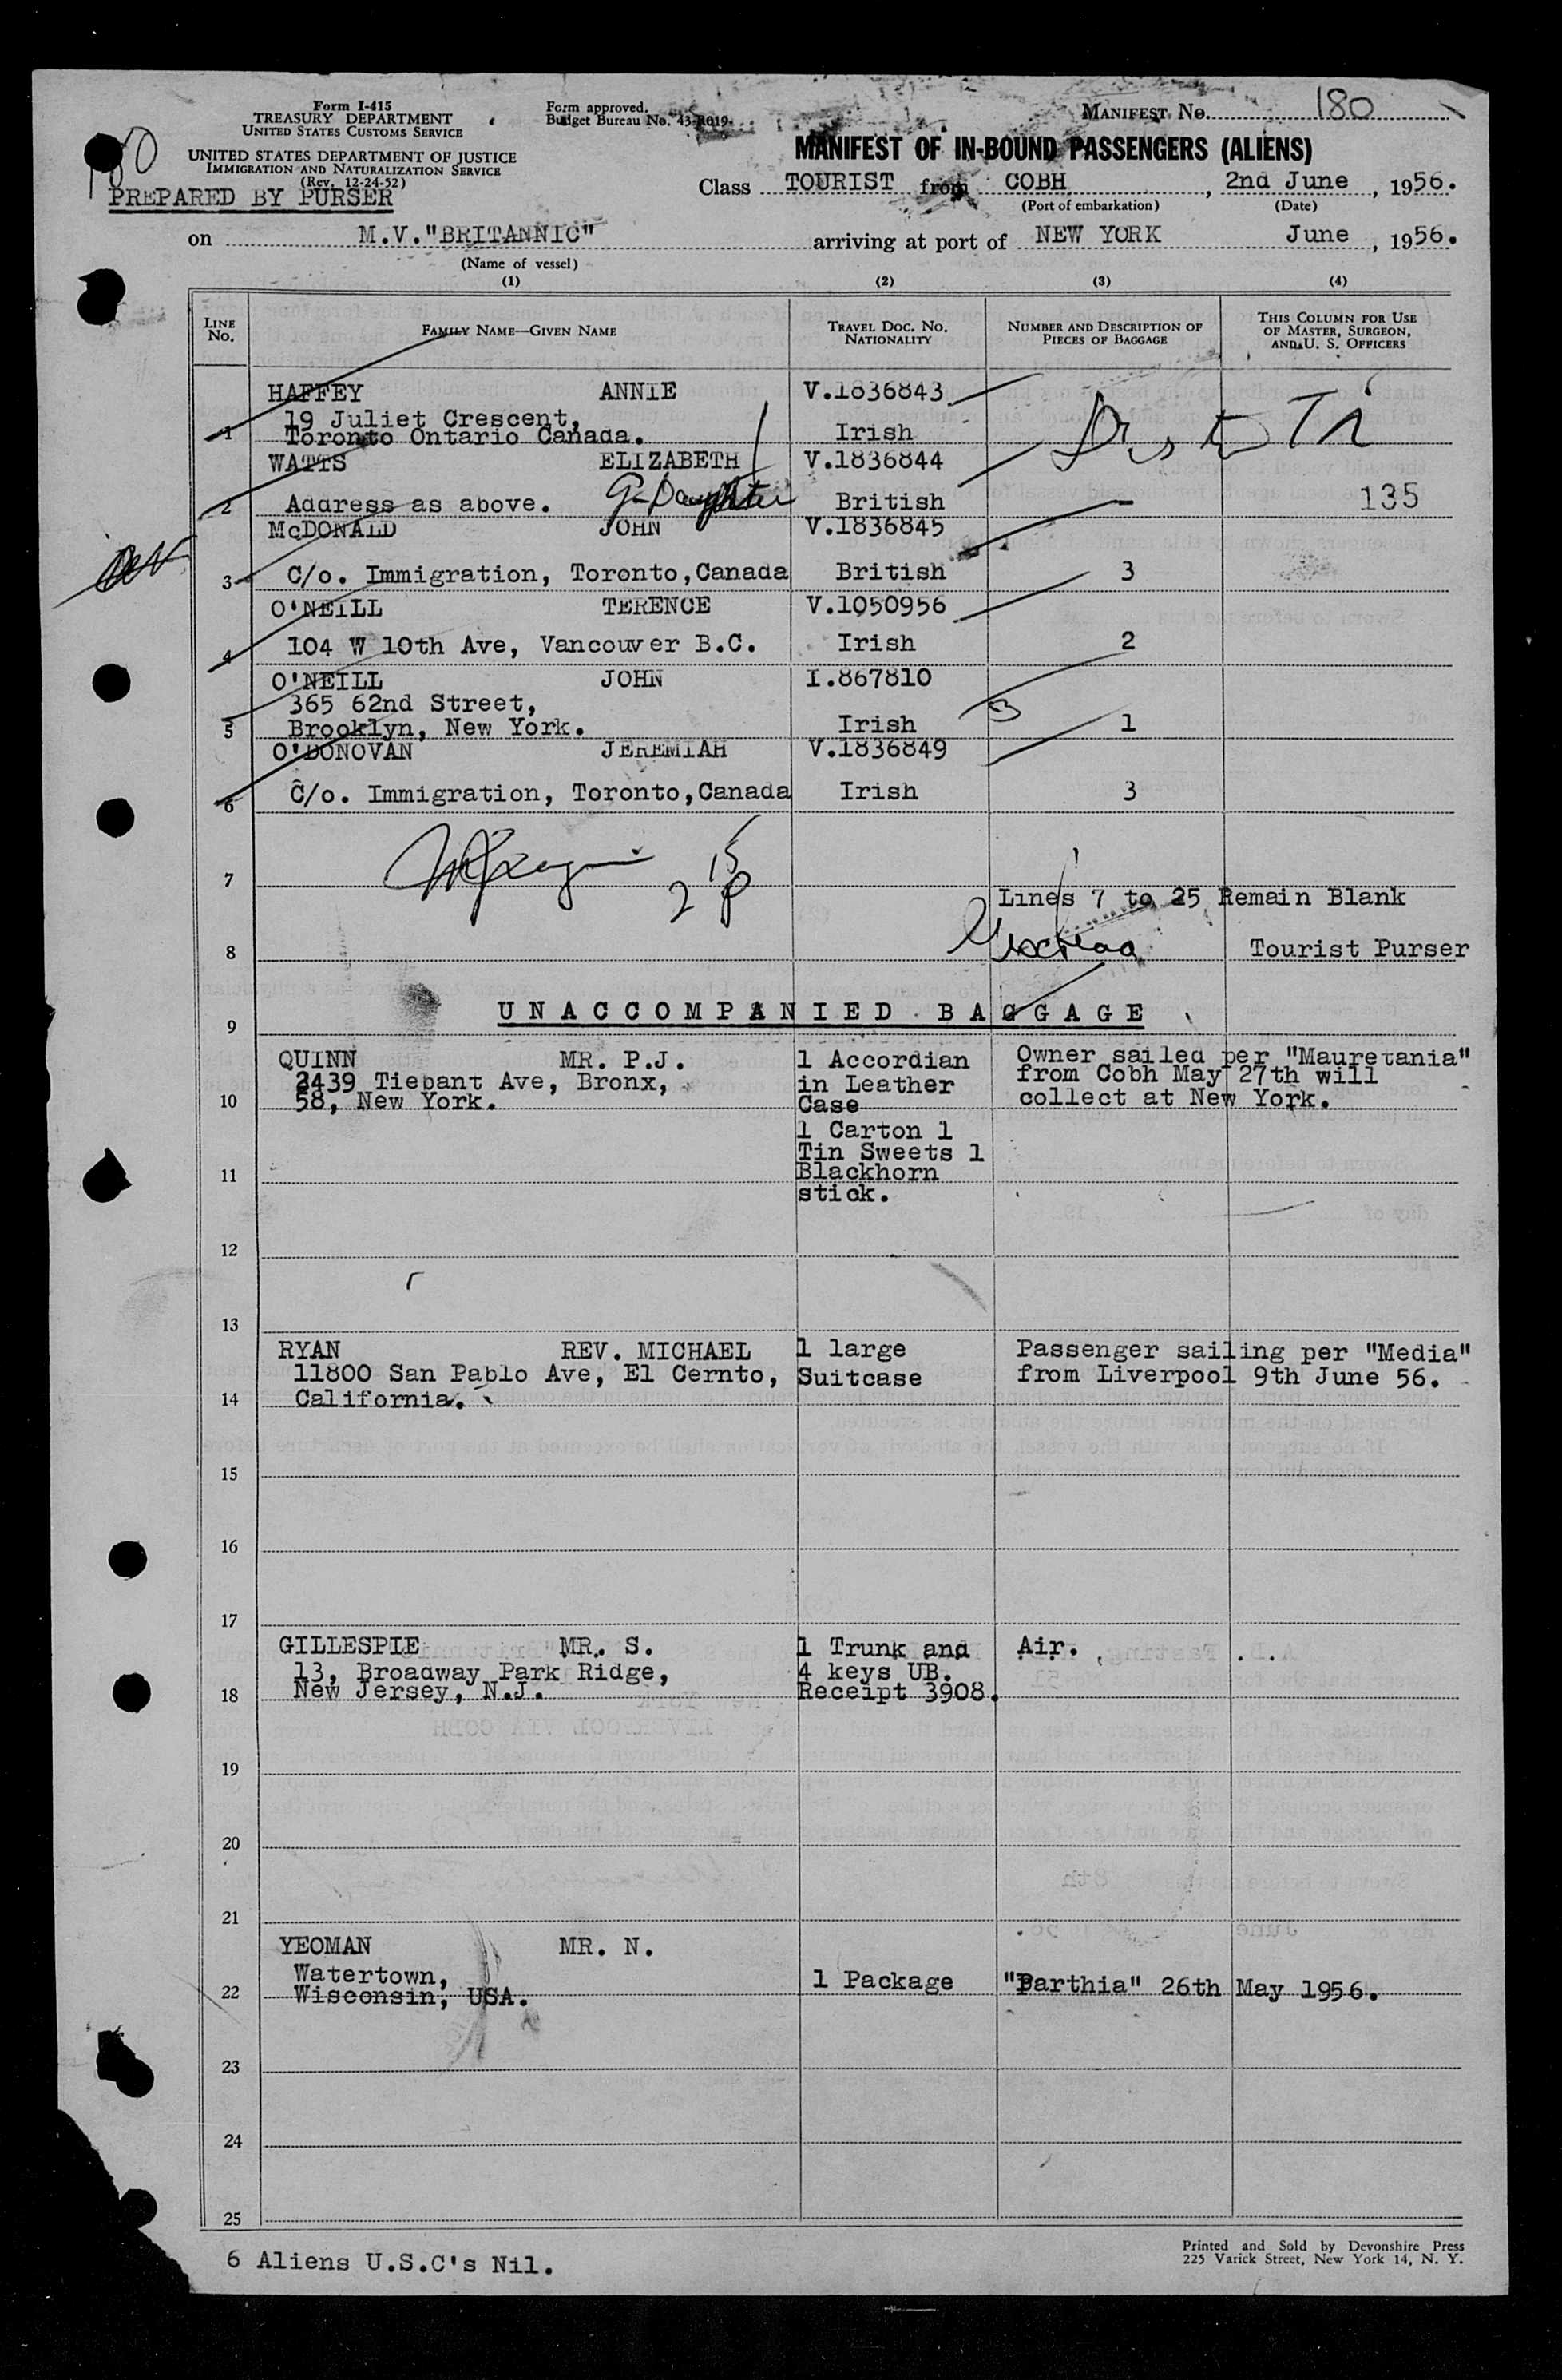 Form I-415
TREASURY DEPARTMENT
UNITED STATES CUSTOMS SERVICE
Form approved.
Budget Bureau No. 43-R019.
MANIFEST No. 180
UNITED STATES DEPARTMENT OF JUSTICE
IMMIGRATION AND NATURALIZATION SERVICE
(Rev. 12-24-52)
PREPARED BY PURSER
MANIFEST OF IN-BOUND PASSENGERS (ALIENS)
Class TOURIST from COBH, 2nd June, 1956.
(Port of embarkation) (Date)
on M.V."BRITANNIC" arriving at port of NEW YORK June, 1956.
(Name of vessel)
(1) (2) (3) (4)
LINE NO. FAMILY NAME—GIVEN NAME TRAVEL DOC. NO. NATIONALITY NUMBER AND DESCRIPTION OF PIECES OF BAGGAGE THIS COLUMN FOR USE OF MASTER, SURGEON, AND U. S. OFFICERS
HAFFEY ANNIE V.1836843
19 Juliet Crescent,
1 Toronto Ontario Canada. Irish
WATTS ELIZABETH V.1836844
2 Address as above. G-Daughter British — 135
McDONALD JOHN V.1836845
3 C/o. Immigration, Toronto,Canada British 3
O'NEILL TERENCE V.1050956
4 104 W 10th Ave, Vancouver B.C. Irish 2
O'NEILL JOHN I.867810
365 62nd Street,
5 Brooklyn, New York. Irish 1
O'DONOVAN JEREMIAH V.1836849
6 C/o. Immigration, Toronto,Canada Irish 3
7
Lines 7 to 25 Remain Blank
8 Tourist Purser
9 UNACCOMPANIED BAGGAGE
QUINN MR. P.J. 1 Accordian Owner sailed per "Mauretania"
2439 Tiebant Ave, Bronx, in Leather from Cobh May 27th will
10 58, New York. Case collect at New York.
1 Carton 1
Tin Sweets 1
11 Blackhorn
stick.
12
13
RYAN REV. MICHAEL 1 large Passenger sailing per "Media"
11800 San Pablo Ave, El Cernto, Suitcase from Liverpool 9th June 56.
14 California.
15
16
17
GILLESPIE MR. S. 1 Trunk and Air.
13, Broadway Park Ridge, 4 keys UB.
18 New Jersey, N.J. Receipt 3908.
19
20
21
YEOMAN MR. N.
Watertown, 1 Package "Parthia" 26th May 1956.
22 Wisconsin, USA.
23
24
25
6 Aliens U.S.C's Nil.
Printed and Sold by Devonshire Press
225 Varick Street, New York 14, N. Y.